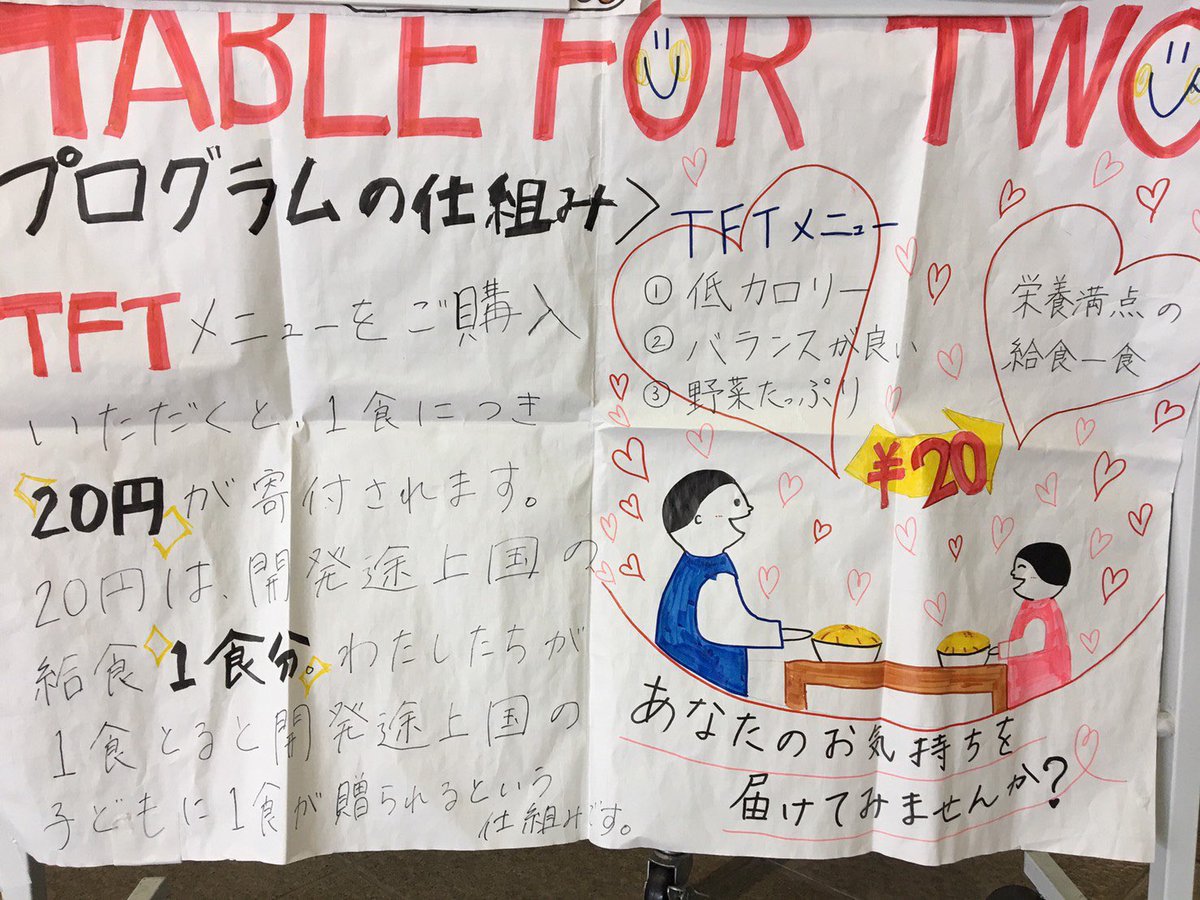 TABLE FOR TWO
プログラムの仕組み>
TFTメニューをご購入
いただくと、1食につき
20円が寄付されます。
20円は、開発途上国の
給食1食分。わたしたちが
1食とると開発途上国の
子どもに1食が贈られるという
仕組みです。
TFTメニュー
① 低カロリー
② バランスが良い
③ 野菜たっぷり
栄養満点の
給食一食
¥20
あなたのお気持ちを
届けてみませんか?